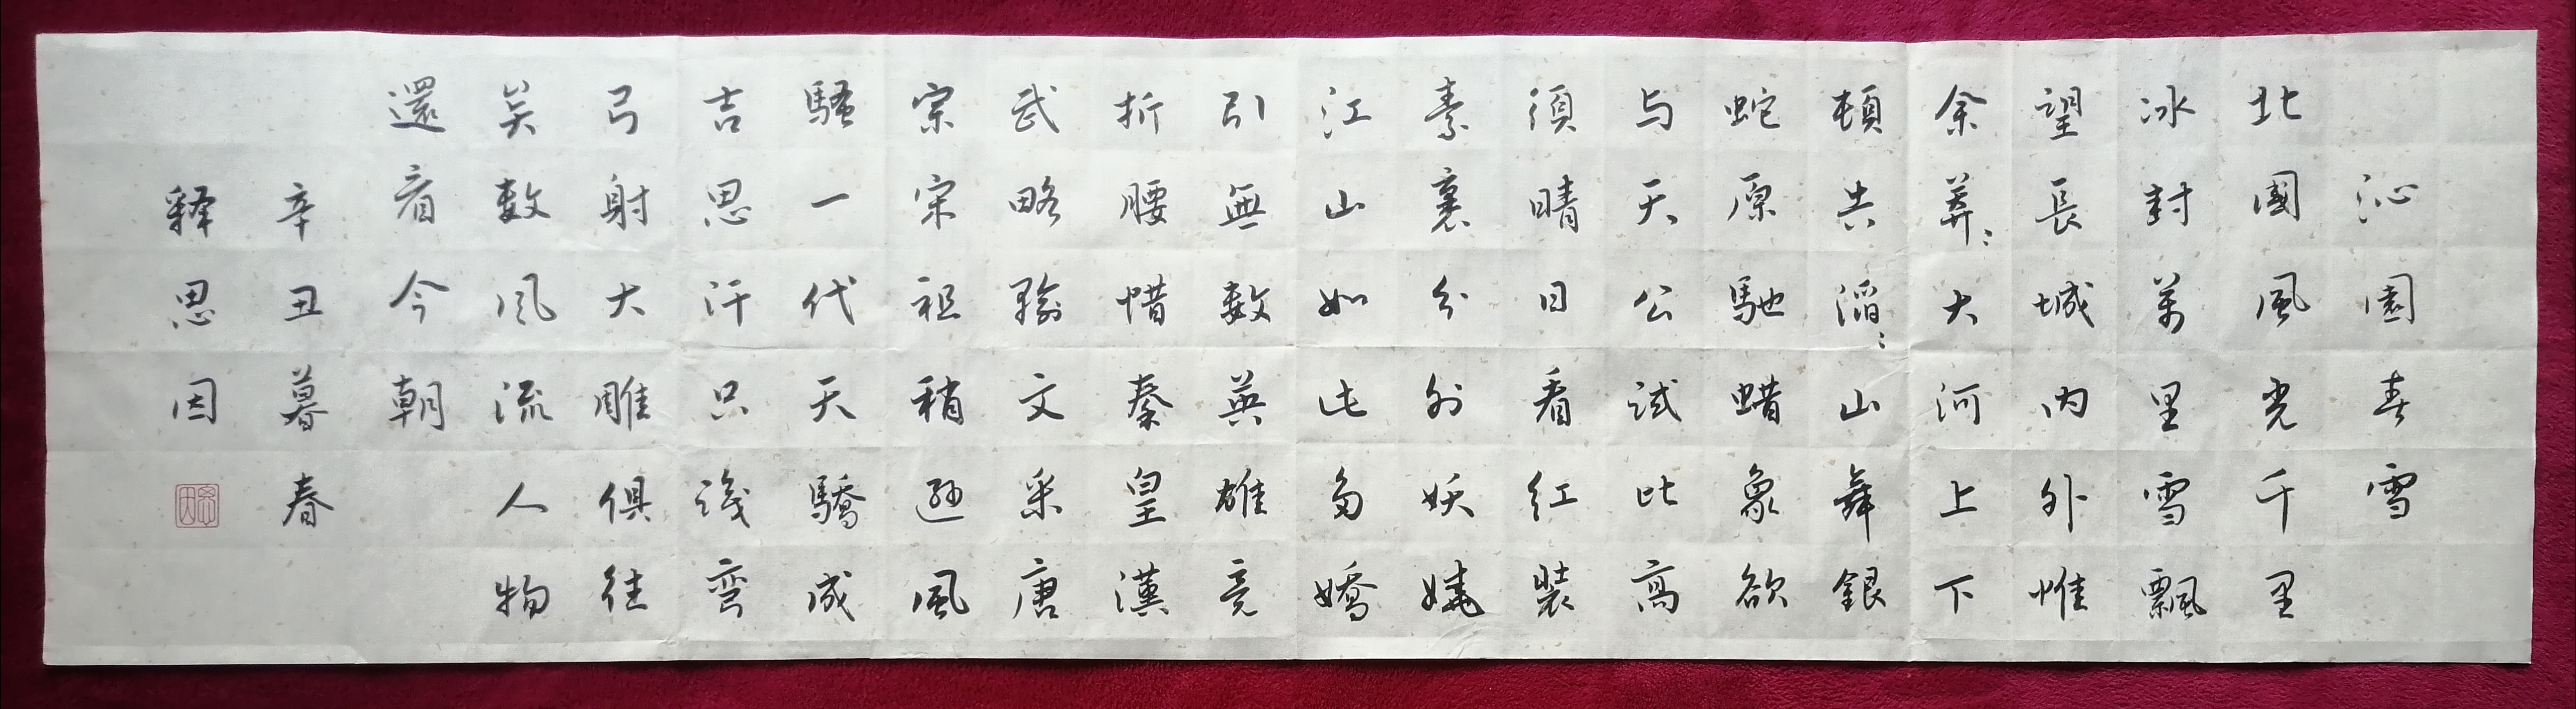 沁園春雪
北國風光千里
冰封萬里雪飄
望長城内外惟
余莽:大河上下
頓失滔:山舞銀
蛇原馳蜡象欲
与天公試比高
須晴日看紅裝
素裹分外妖嬈
江山如此多嬌
引無數英雄竞
折腰惜秦皇漢
武略輸文采唐
宗宋祖稍遜風
騷一代天驕成
吉思汗只識彎
弓射大雕俱往
矣數風流人物
還看今朝
辛丑暮春
释思因